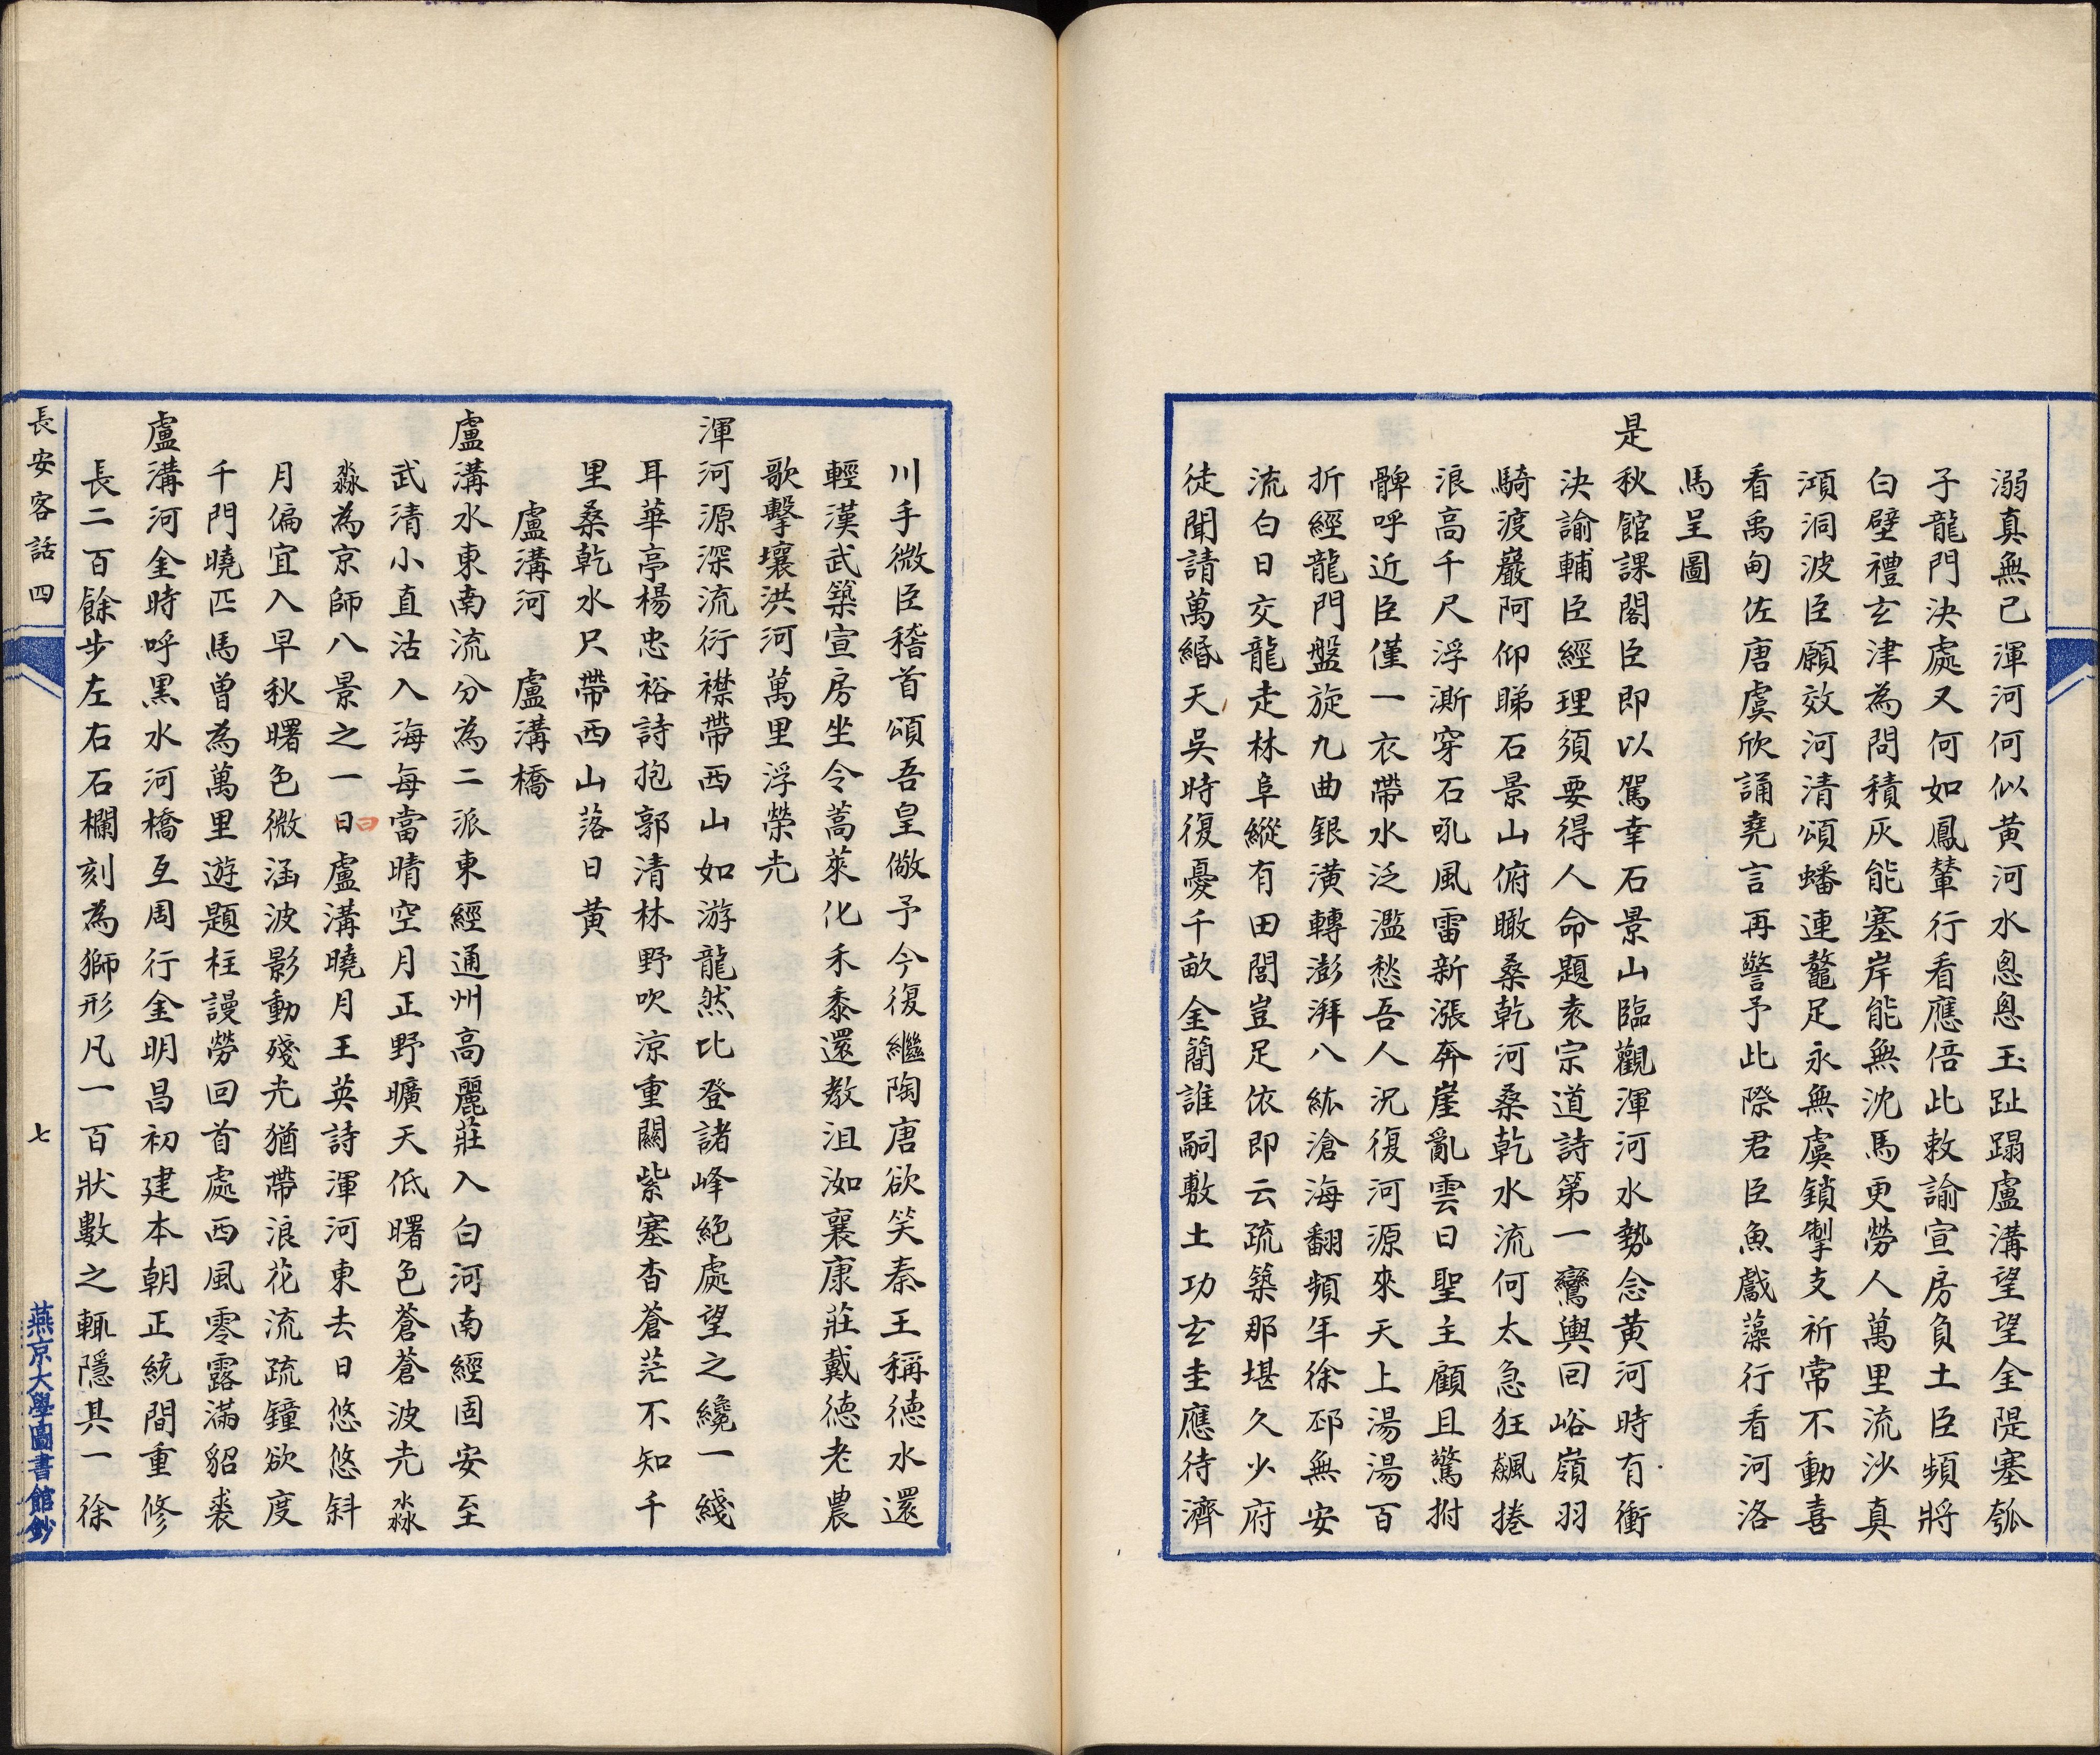 溺真無已渾河何似黄河水悤悤玉趾蹋盧溝望望金隄塞瓠
子龍門決處又何如鳳輦行看應倍此敕諭宣房負土臣頻將
白璧禮玄津為問積灰能塞岸能無沈馬更勞人萬里流沙真
澒洞波臣願效河清頌蟠連鼇足永無虞鎖掣支祈常不動喜
看禹甸佐唐虞欣誦堯言再警予此際君臣魚戲藻行看河洛
馬呈圖
是秋館課閣臣即以駕幸石景山臨觀渾河水勢念黄河時有衝
決諭輔臣經理須要得人命題袁宗道詩第一鸞輿回峪嶺羽
騎渡巖阿仰睇石景山俯瞰桑乾河桑乾水流何太急狂飆捲
浪高千尺浮澌穿石吼風雷新漲奔崖亂雲日聖主顧且驚拊
髀呼近臣僅一衣帶水泛濫愁吾人況復河源來天上湯湯百
折經龍門盤旋九曲銀潢轉澎湃八紘滄海翻頻年徐邳無安
流白日交龍走林阜縱有田閭豈足依即云疏築那堪久少府
徒聞請萬緡天吳時復憂千畝金簡誰嗣敷土功玄圭應待濟
川手微臣稽首頌吾皇儆予今復繼陶唐欲笑秦王稱徳水還
輕漢武築宣房坐令蒿萊化禾黍還教沮洳襄康莊戴徳老農
歌擊壤洪河萬里浮榮光
渾河源深流衍襟帶西山如游龍然比登諸峰絕處望之纔一綫
耳華亭楊忠裕詩抱郭清林野吹涼重關紫塞杳蒼茫不知千
里桑乾水尺帶西山落日黄
盧溝河　盧溝橋
盧溝水東南流分為二派東經通州高麗莊入白河南經固安至
武清小直沽入海每當晴空月正野曠天低曙色蒼蒼波光淼
淼為京師八景之一日曰盧溝曉月王英詩渾河東去日悠悠斜
月偏宜入早秋曙色微涵波影動殘光猶帶浪花流疏鐘欲度
千門曉匹馬曾為萬里遊題柱謾勞回首處西風零露滿貂裘
盧溝河金時呼黑水河橋亙周行金明昌初建本朝正統間重修
長二百餘步左右石欄刻為獅形凡一百狀數之輒隱其一徐
長安客話 四
七
燕京大學圖書館鈔